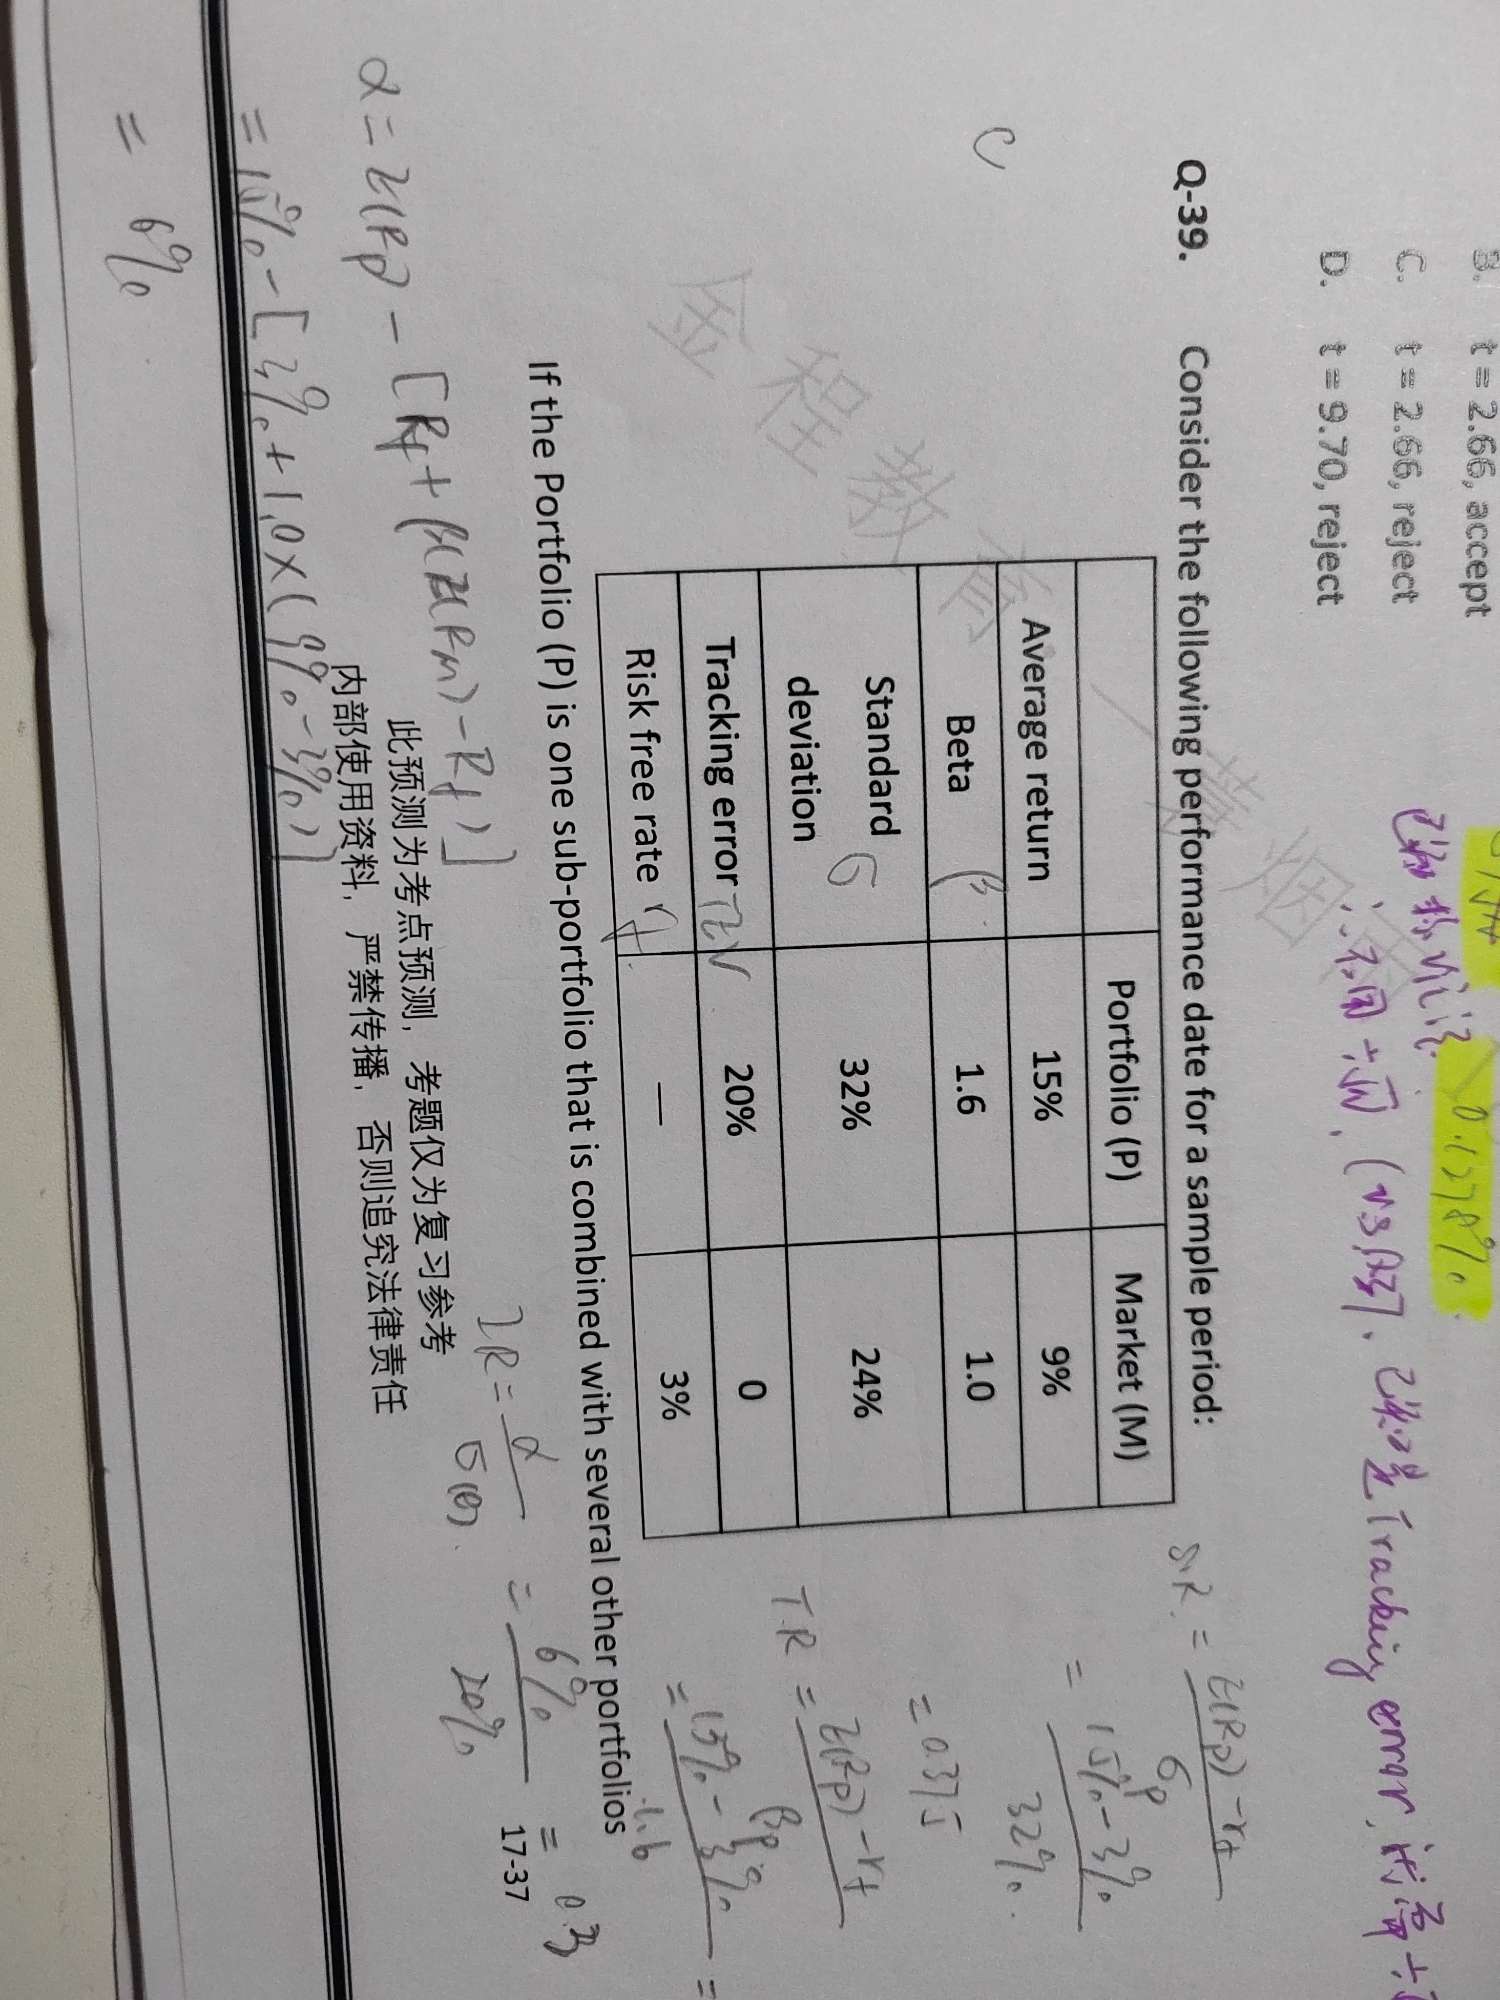 B. t = 2.66, accept
C. t = 2.66, reject
D. t = 9.70, reject
0.1278%
Tracking error,
Q-39. Consider the following performance date for a sample period:
C
Portfolio (P) Market (M)
Average return 15% 9%
Beta β 1.6 1.0
Standard deviation σ 32% 24%
Tracking error 20% 0
Risk free rate rf — 3%
If the Portfolio (P) is one sub-portfolio that is combined with several other portfolios
S.R. = E(Rp) - rf / σp
= 15% - 3% / 32%
= 0.375
T.R = E(Rp) - rf / βp
= 15% - 3% / 1.6 =
IR = α / σ(e) = 6% / 20% = 0.3
17-37
此预测为考点预测，考题仅为复习参考
内部使用资料，严禁传播，否则追究法律责任
α = E(Rp) - [Rf + β(E(Rm) - Rf)]
= 15% - [3% + 1.0 × (9% - 3%)]
= 6%
金程教育